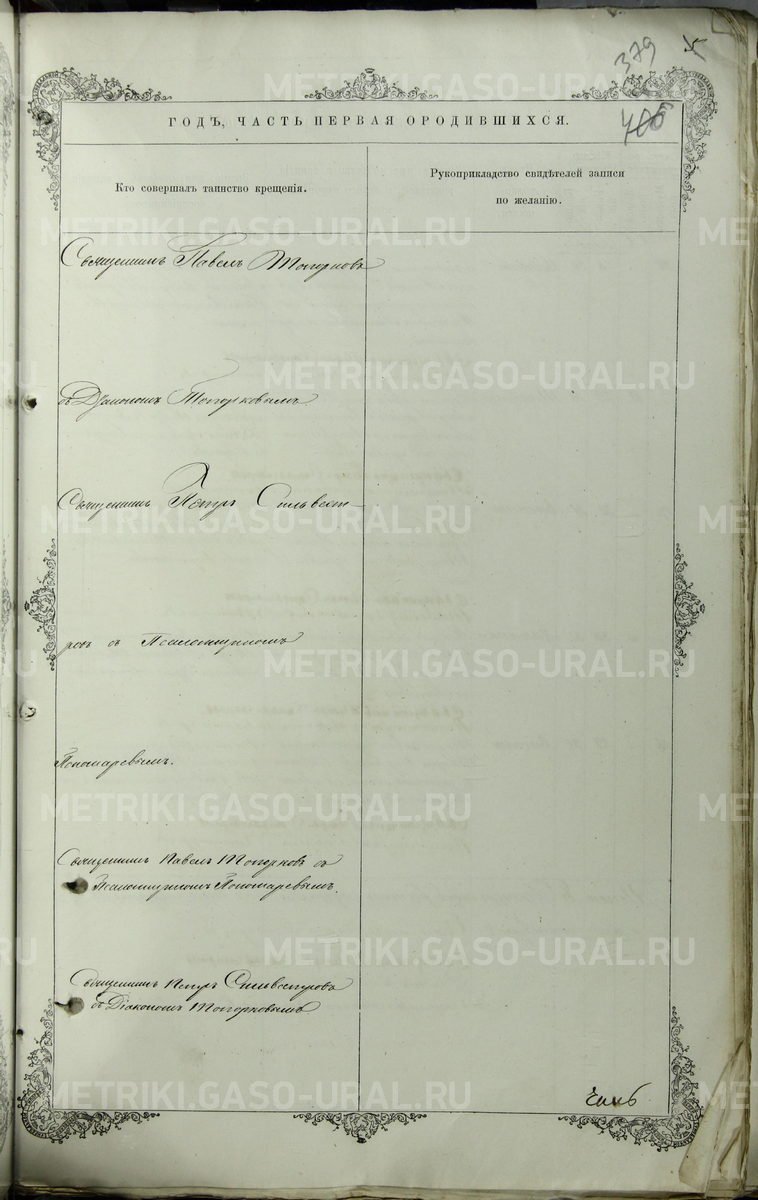 379
ГОДЪ, ЧАСТЬ ПЕРВАЯ О РОДИВШИХСЯ.
Кто совершалъ таинство крещенія.
Рукоприкладство свидѣтелей записи
по желанію.
Священникъ Павелъ Топорковъ
съ Діакономъ Топорковымъ.
Священникъ Петръ Сильвест-
ровъ съ Псаломщикомъ
Пономаревымъ.
Священникъ Павелъ Топорковъ съ
Псаломщикомъ Пономаревымъ.
Священникъ Петръ Сильвестровъ
съ Діакономъ Топорковымъ
METRIKI.GASO-URAL.RU